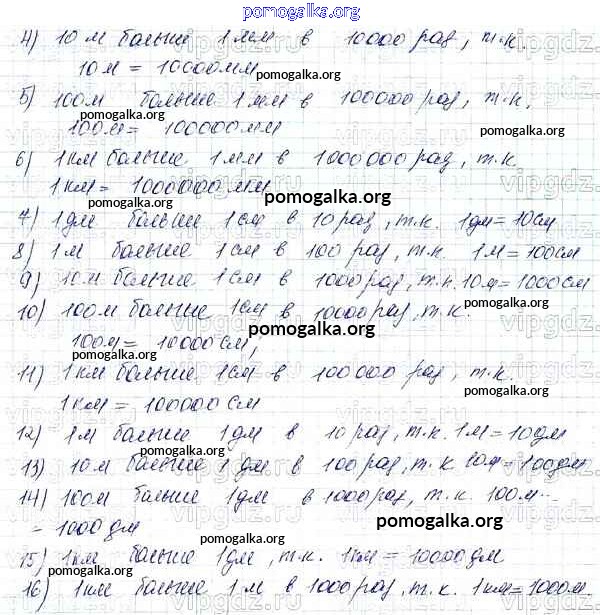 pomogalka.org
4) 10 м больше 1 мм в 10000 раз, т.к.
10м = 10000мм
pomogalka.org
5) 100м больше 1 мм в 100000 раз, т.к.
100м = 100000мм
pomogalka.org
6) 1 км больше 1 мм в 1000000 раз, т.к.
1 км = 1000000 мм
pomogalka.org
7) 1 дм больше 1 см в 10 раз, т.к. 1дм = 10см
8) 1 м больше 1 см в 100 раз, т.к. 1м = 100см
9) 10м больше 1 см в 1000 раз, т.к. 10м = 1000см
10) 100м больше 1см в 10000 раз, т.к.
pomogalka.org
100м = 10000 см,
pomogalka.org
11) 1 км больше 1см в 100000 раз, т.к.
pomogalka.org
1 км = 100000 см
12) 1м больше 1 дм в 10 раз, т.к. 1м = 10дм
pomogalka.org
13) 10м больше 1 дм в 100 раз, т.к. 10м = 100дм
pomogalka.org
14) 100м больше 1дм в 1000 раз, т.к. 100м
= 1000 дм
pomogalka.org
15) 1км больше 1дм, т.к. 1км = 10000 дм
pomogalka.org
16) 1 км больше 1 м в 1000 раз, т.к. 1 км = 1000м.